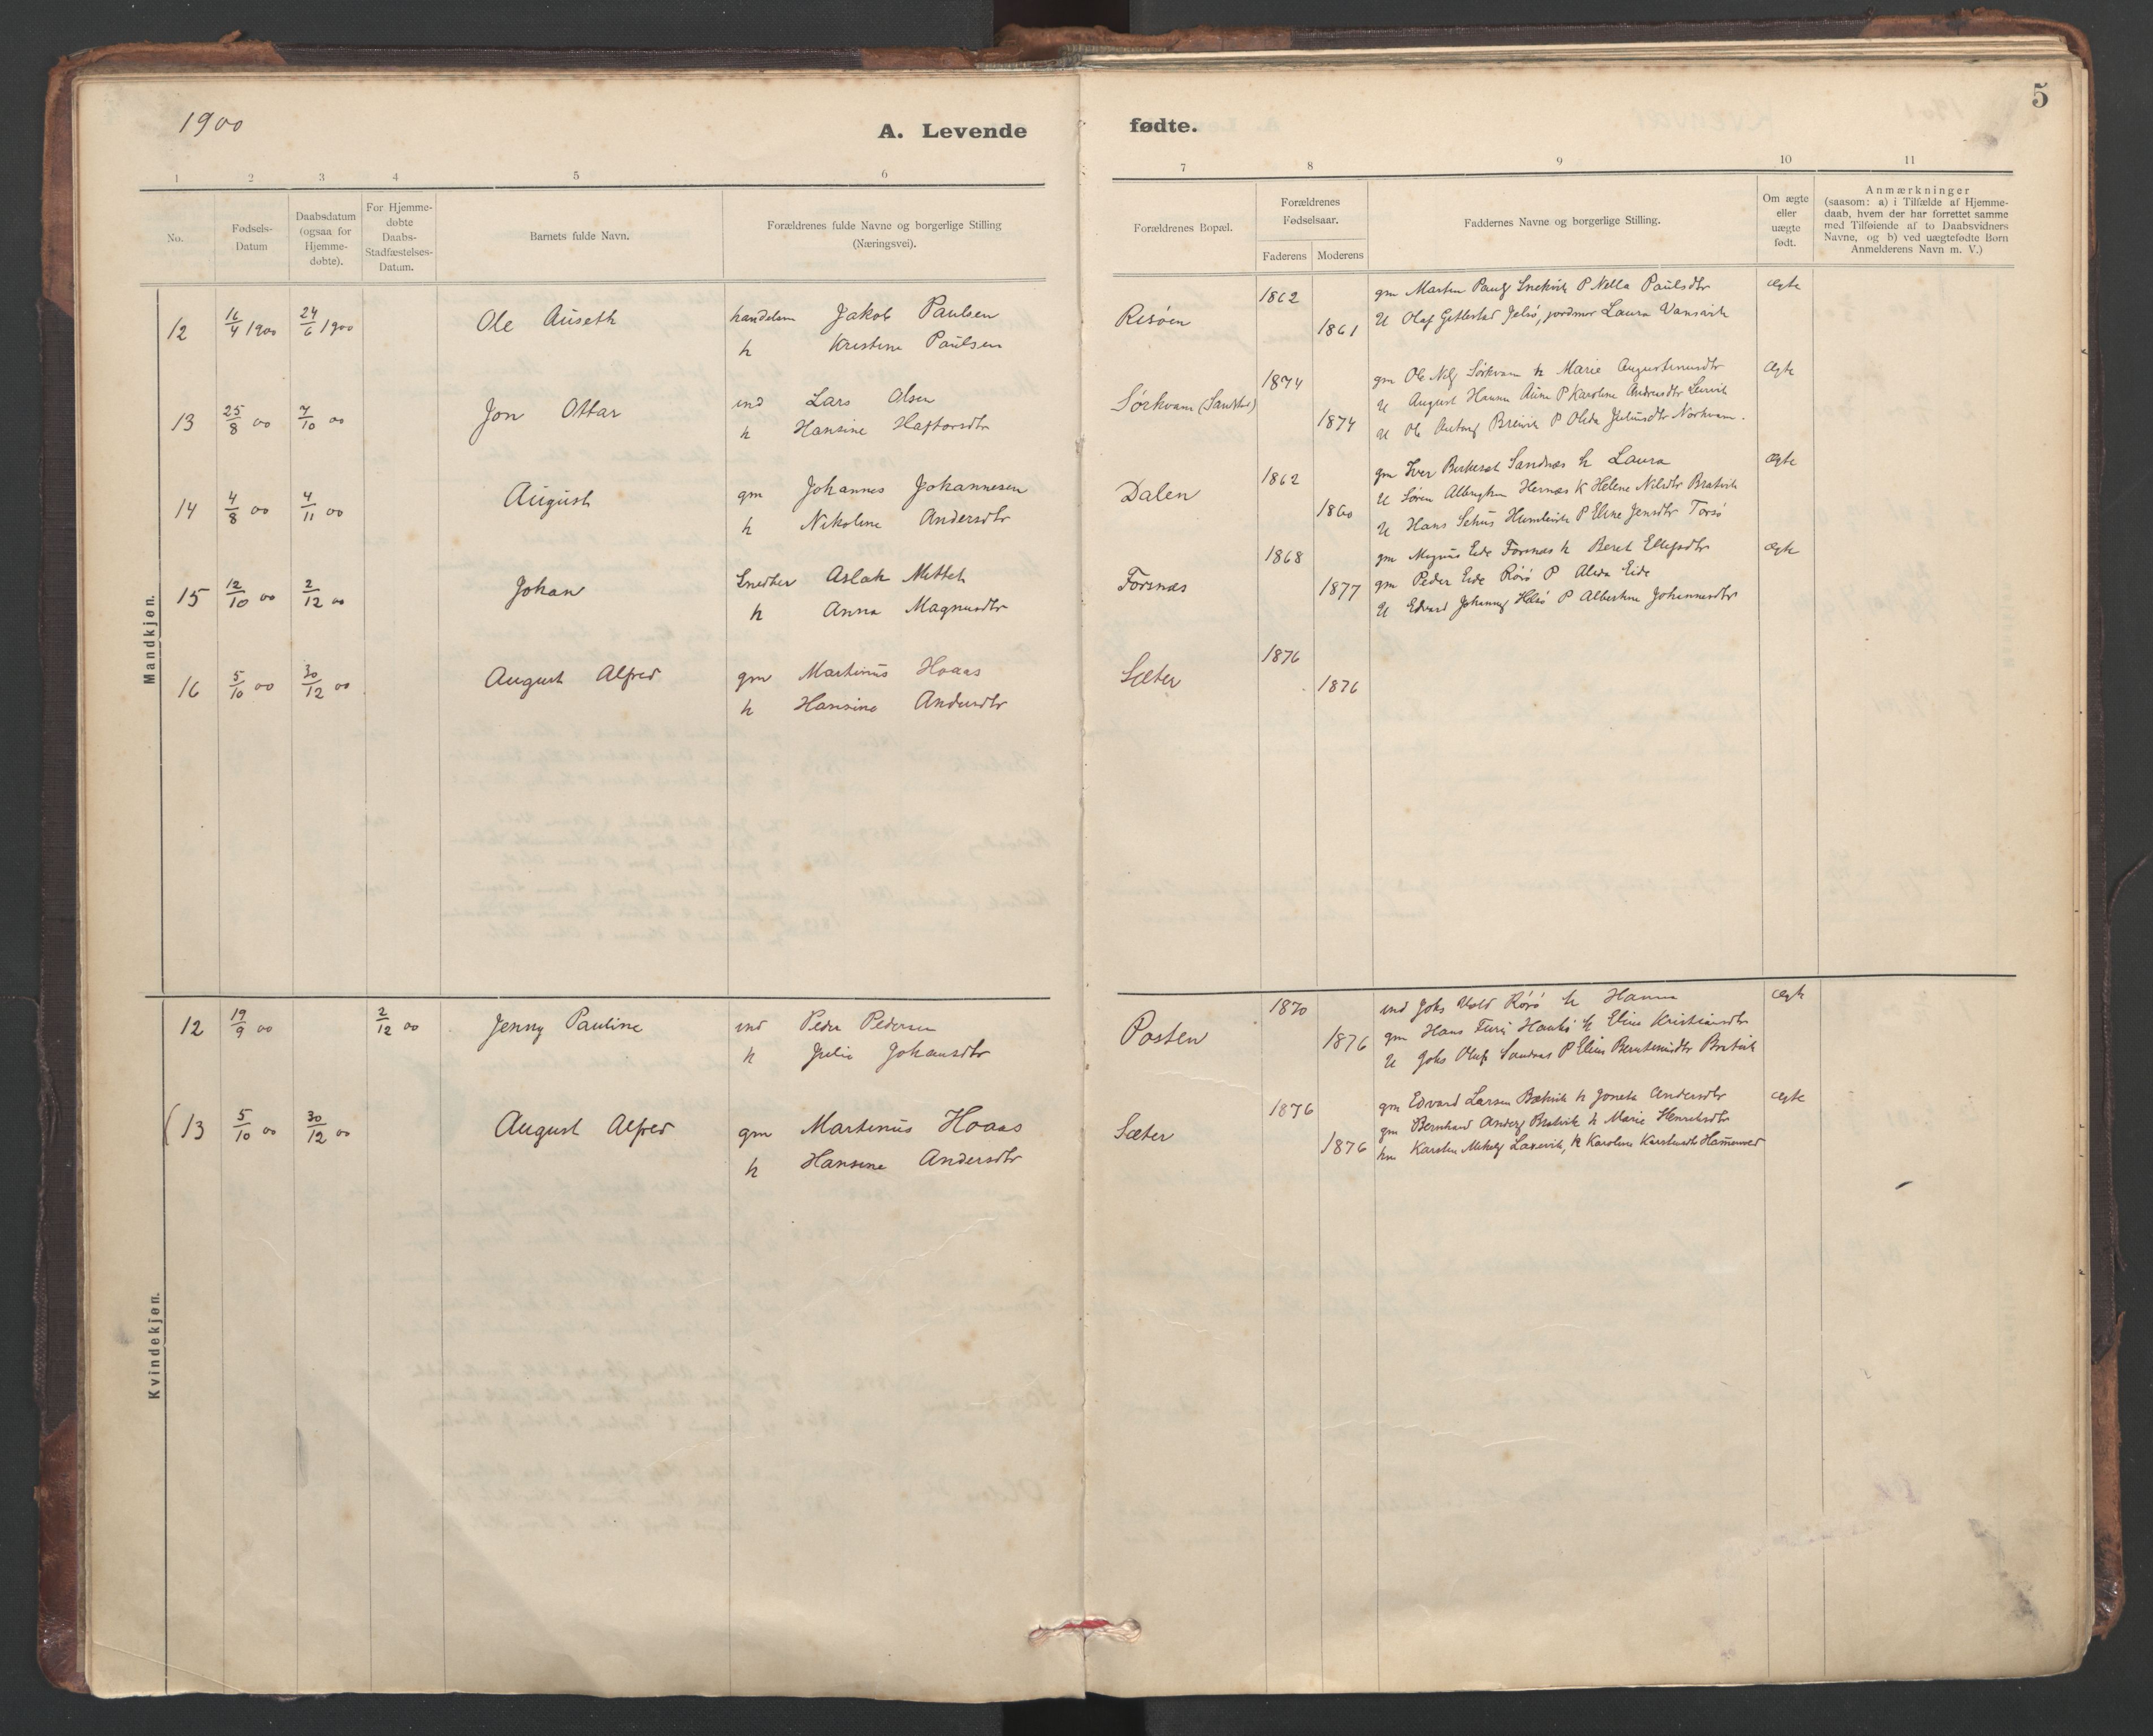 1900
A. Levende
fødte.
5
1 2 3 4 5 6
7 8 9 10 11
No.
Fødsels-
Datum
Daabsdatum
(ogsaa for
Hjemme-
døbte).
For Hjemme-
døbte
Daabs-
Stadfæstelses-
Datum.
Barnets fulde Navn.
Forældrenes fulde Navne og borgerlige Stilling
(Næringsvei).
Forældrenes Bopæl.
Forældrenes
Fødselsaar.
Faderens Moderens
Faddernes Navne og borgerlige Stilling.
Om ægte
eller
uægte
født.
Anmærkninger
(saasom: a) i Tilfælde af Hjemme-
daab, hvem der har forrettet samme
med Tilføiende af to Daabsvidners
Navne, og b) ved uægtefødte Børn
Anmelderens Navn m. V.)
Mandkjøn.
12 16/4 1900 24/6 1900 Ole Auseth handelsm Jakob Paulsen
h Kristine Paulsen
Risøen 1862 1861
gm Martin Pauls Snekvik P Nella Paulsdtr ægte
U Olaf Gjetlestad Jelsø, jordmor Laura Vansvik
13 25/8 00 7/10 00 Jon Ottar ind Lars Olsen
h Hansine Haftorsdtr
Sörkvam (Sandstad) 1874 1874
gm Ole Nils Sörkvam h Marie Augustinusdtr ægte
U August Hansen Aune P Karoline Andreasdtr Lervik
U Ole Breivik P Oleda Juliusdtr Norkvam.
14 4/8 00 4/11 00 August gm Johannes Johannesen
h Nikoline Andersdtr
Dalen 1862 1860
gm Iver Berkeset Sandnes h Laura ægte
U Sören Hernes K Helene Nilsdtr Bratvik
U Hans Humlevik P Eline Jensdtr Torsö
15 12/10 00 2/12 00 Johan Snedker Aslak Mittet
h Anna Magnusdtr
Forsnas 1868 1877
gm Magnus Eide Forsnas h Beret Ellefsdtr ægte
gm Peder Eide Rörö P Alida Eide
U Edvard Johannes Helsö P Albertine Johannesdtr
16 5/10 00 30/12 00 August Alfred gm Martinus Hoaas
h Hansine Andersdtr
Sæter 1876 1876
Kvindekjøn.
12 19/9 00 2/12 00 Jenny Pauline ind Peder Pedersen
h Julie Johansdtr
Posten 1870 1876
ind Johs Vold Rörö h Hanna ægte
gm Hans h Eline Kristiansdtr
U Johs Olufs Sandnes P Eline Berntsdtr Bratvik
(13 5/10 00 30/12 00 August Alfred gm Martinus Hoaas
h Hansine Andersdtr
Sæter 1876 1876
gm Edvard Larsen Bækvik h Joneta Andersdtr ægte
gm Bernhard Anders Bratvik h Marie Henriksdtr
hm Karsten Mikels Laxevik, h Karoline Karstensdtr Hammervod